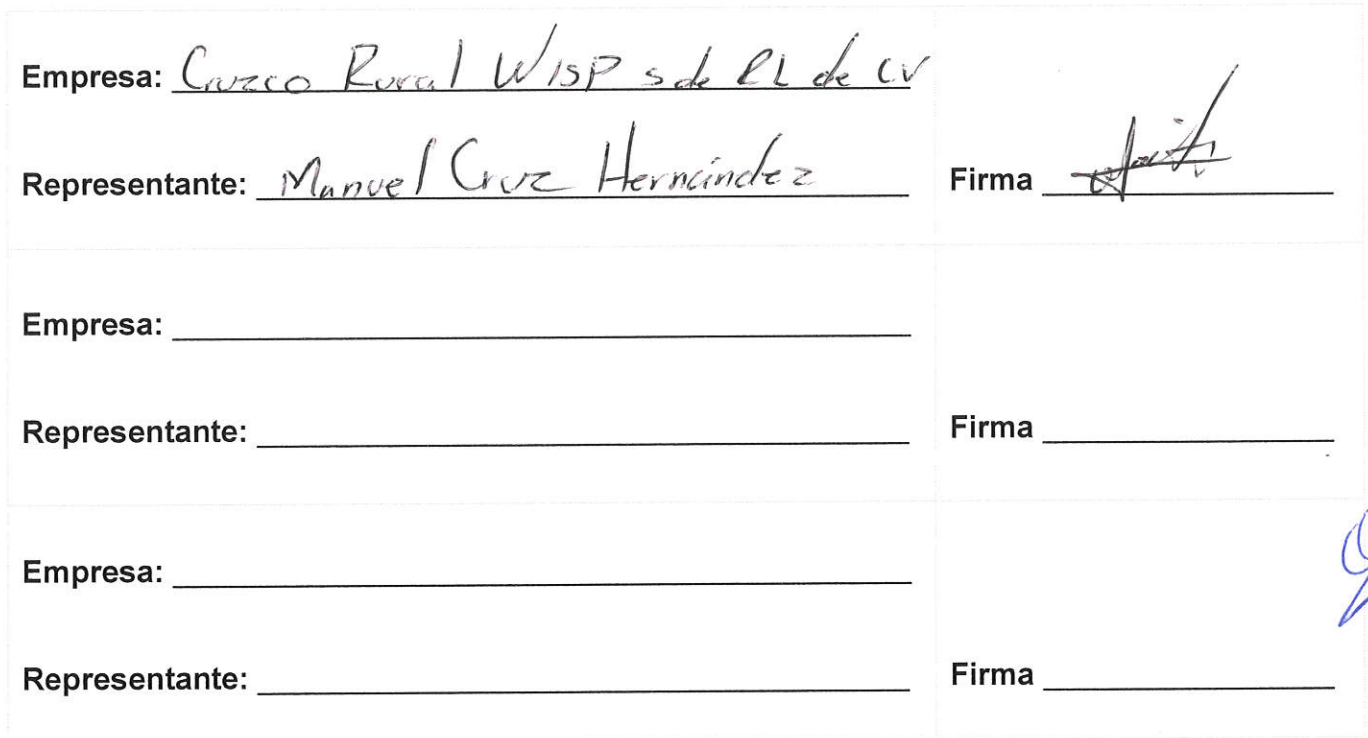 Empresa: Cruzco Rural WISP s de RL de CV
Representante: Manuel Cruz Hernández Firma
Empresa:
Representante: Firma
Empresa:
Representante: Firma